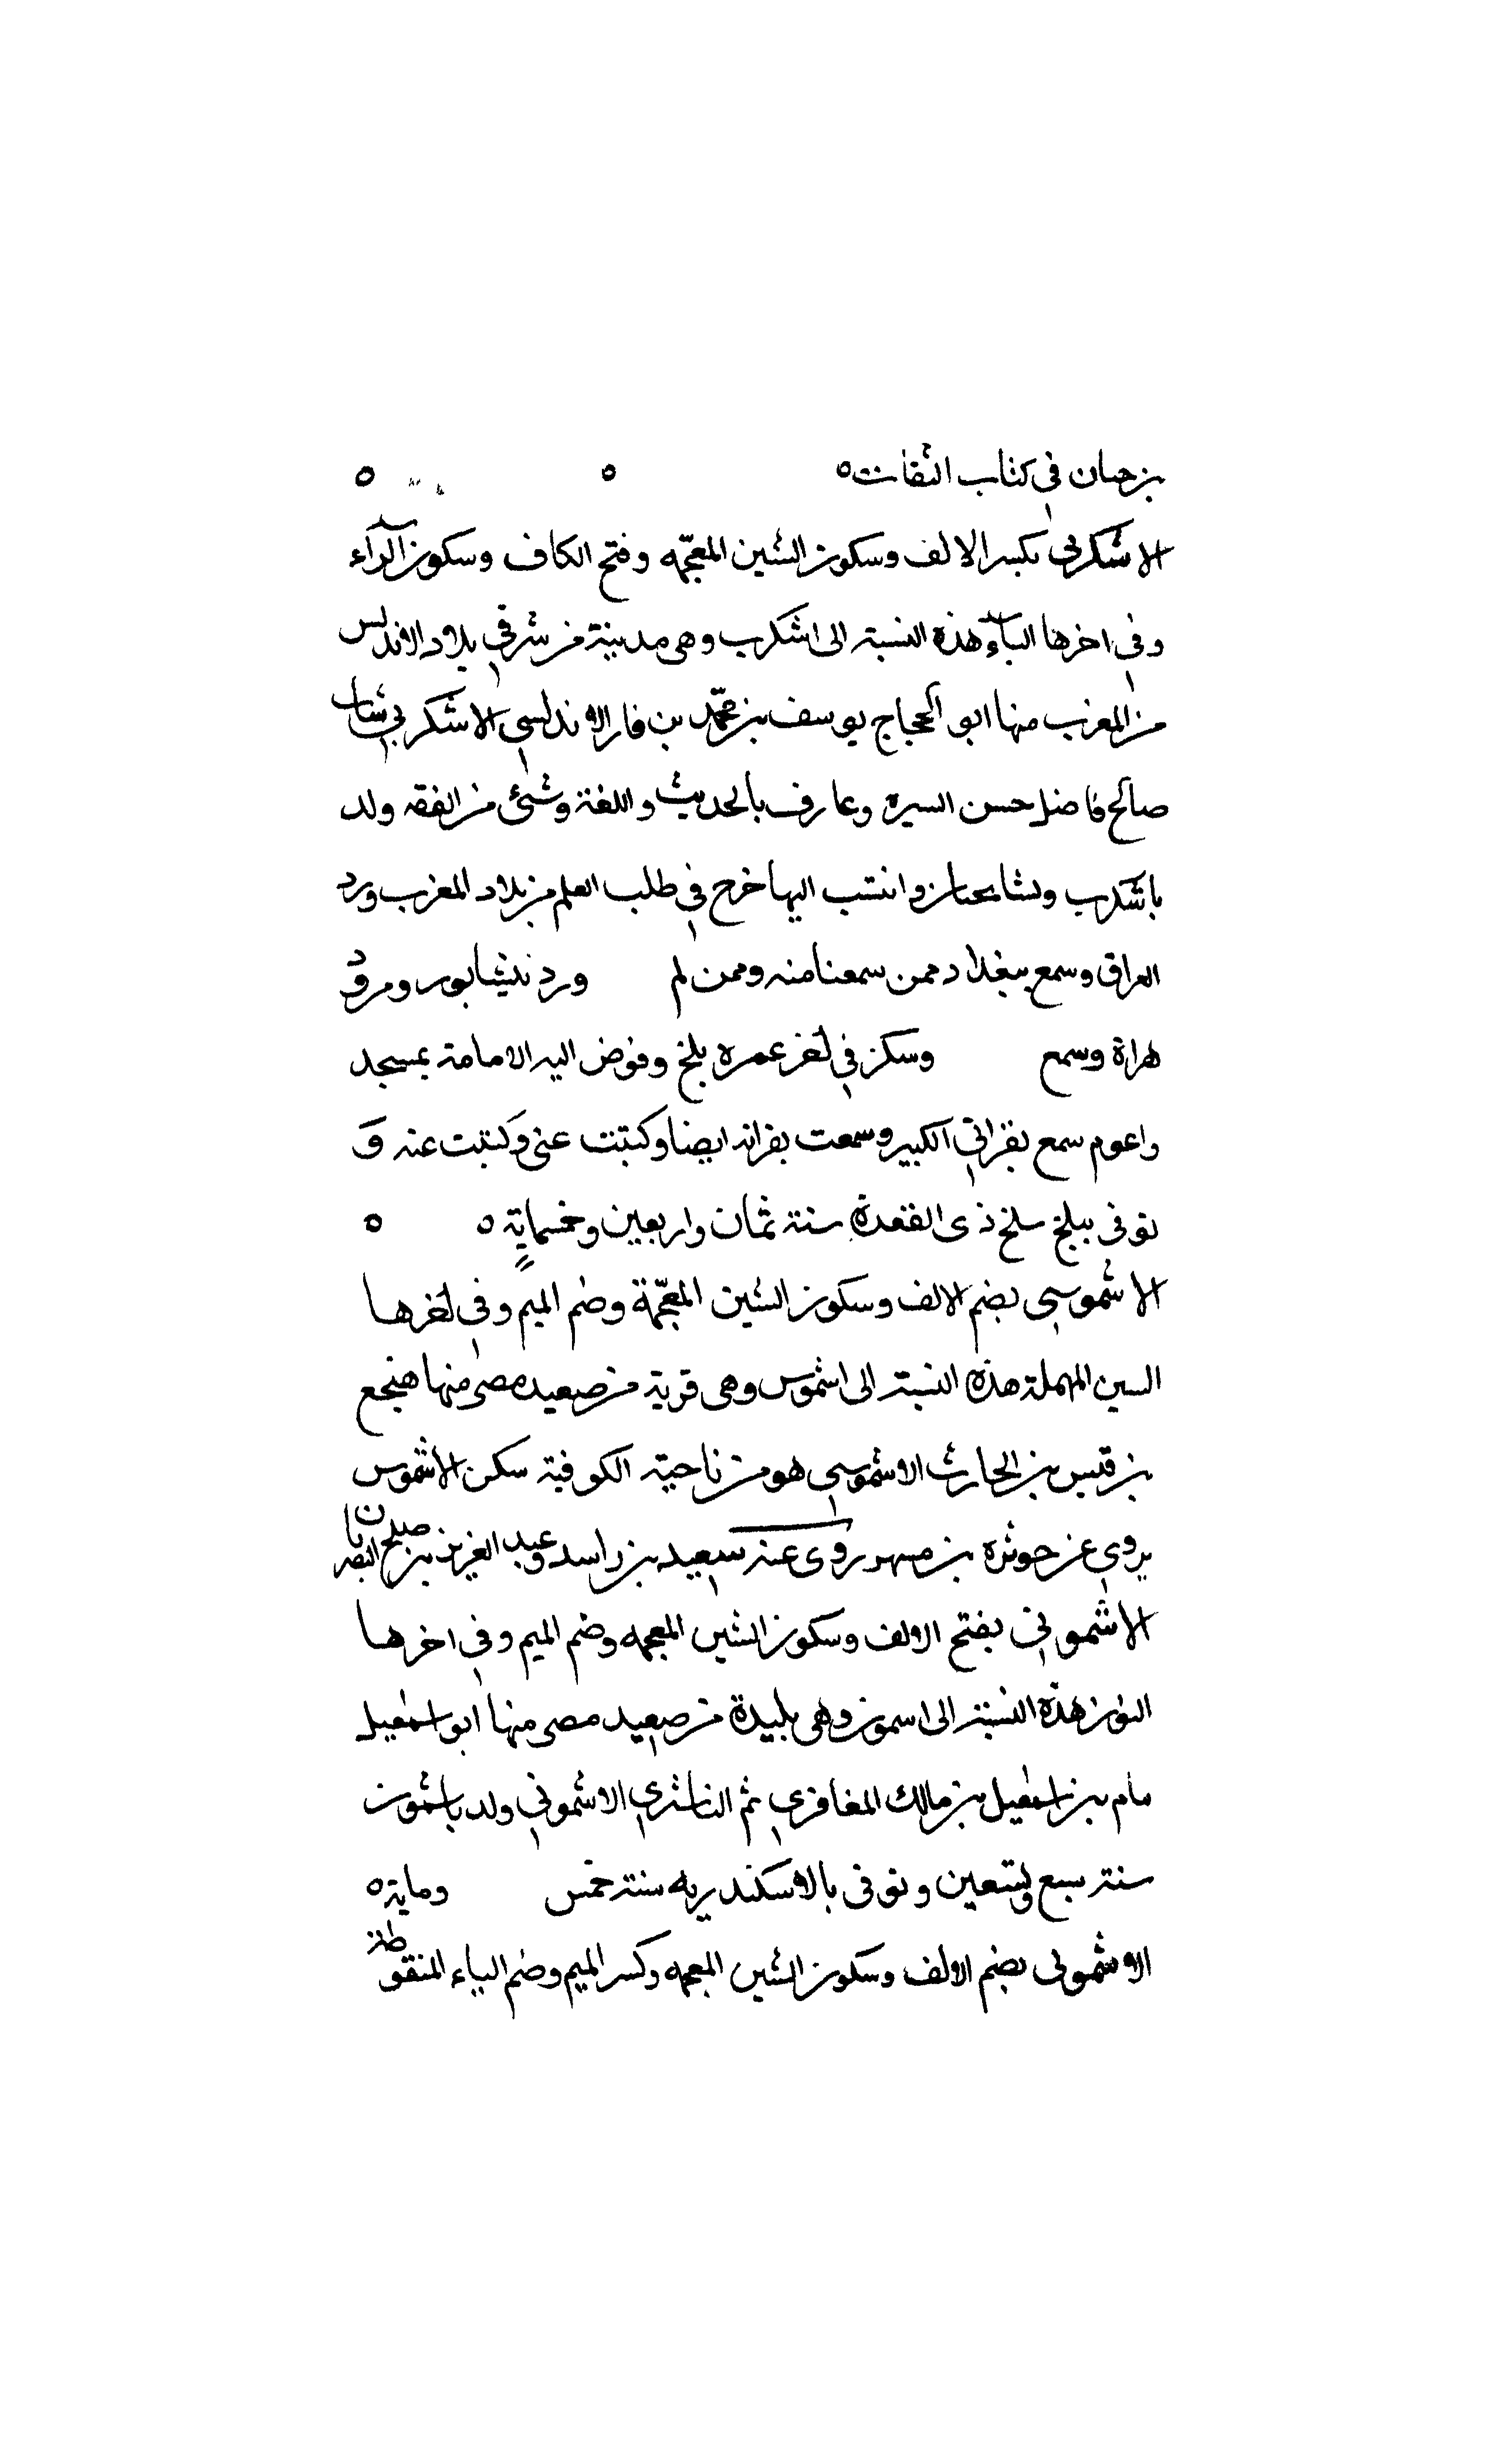 بن حبان في كتاب الثقات ه ه ه
الاشكربي بكسر الالف وسكون الشين المعجمه وفتح الكاف وسكون الرآء
وفي اخرها الباء هذه النسبة الى اشكرب وهى مدينة من شرقي بلاد الاندلس
من المغرب منها ابو الحجاج يوسف بن محمد بن فار الاندلسي الاشكربي شاب
صالح فاضل حسن السيره وعارف بالحديث واللغة وشئ من الفقه ولد
باشكرب ونشا بجيان وانتسب اليها خرج في طلب العلم من بلاد المغرب ورد
العراق وسمع ببغداد ممن سمعنا منه وممن لم ورد نيشابور ومرو
هراة وسمع وسكن في اخر عمره بلخ وفوض اليه الامامة بمسجد
راعوم سمع بقراتي الكبير وسمعت بقراته ايضا وكتبت عنى وكتبت عنه وَ
توفى ببلخ سلخ ذى القعدة سنة ثمان واربعين وخمسماية ه ه
الاشموسي بضم الالف وسكون الشين المعجمة وضم الميم وفي اخرها
السين المهملة هذه النسبة الى اشموس وهى قرية من صعيد مصر منها هنجع
بن قيس بن الحارث الاشموسي هو من ناحية الكوفية سكن الاشموس
يروي عن حوثره بن مسهر روى عنه سعيد بن راسد وعبد العزيز بن صلح النصر
الاشموني بفتح الالف وسكون الشين المعجمه وضم الميم وفي اخرها
النون هذه النسبة الى اسمون وهى بليدة من صعيد مصر منها ابو اسمعيل
مام بن اسمعيل بن مالك المغافري ثم الناشري الاشموني ولد باشمون
سنة سبع وتسعين وتوفى بالاسكندريه سنة خمس وماية ه
الاشموني بضم الالف وسكون الشين المعجمه وكسر الميم وضم الياء المنقوطة